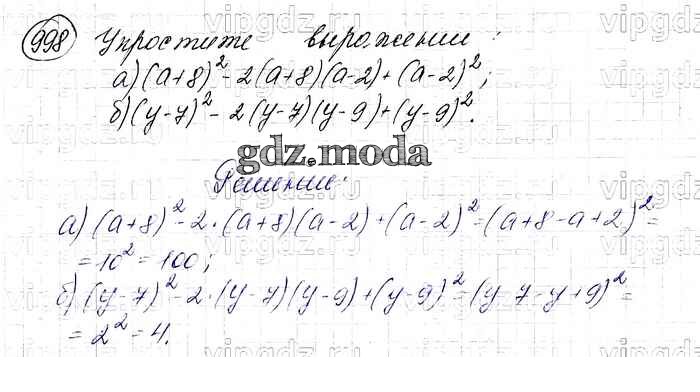 998 Упростите выражении:
а) (a+8)² - 2(a+8)(a-2) + (a-2)²;
б) (y-7)² - 2(y-7)(y-9) + (y-9)².
gdz.moda
Решение:
а) (a+8)² - 2·(a+8)(a-2) + (a-2)² = (a+8-a+2)² =
= 10² = 100;
б) (y-7)² - 2·(y-7)(y-9) + (y-9)² = (y-7-y+9)² =
= 2² = 4.
vipgdz.com